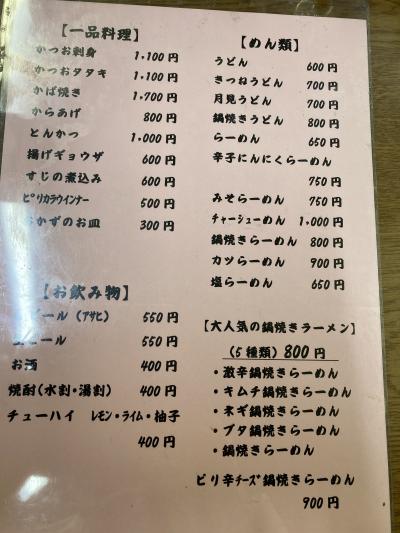 【一品料理】
かつお刺身 1,100円
かつおタタキ 1,100円
かば焼き 1,700円
からあげ 800円
とんかつ 1,000円
揚げギョウザ 600円
すじの煮込み 600円
ピリカラウインナー 500円
かずのお皿 300円
【お飲み物】
ビール(アサヒ) 550円
ビール 550円
お酒 400円
焼酎(水割・湯割) 400円
チューハイ レモン・ライム・柚子
400円
【めん類】
うどん 600円
きつねうどん 700円
月見うどん 700円
鍋焼きうどん 800円
らーめん 650円
辛子にんにくらーめん
750円
みそらーめん 750円
チャーシューめん 1,000円
鍋焼きらーめん 800円
カツらーめん 900円
塩らーめん 650円
【大人気の鍋焼きラーメン】
(5種類)800円
・激辛鍋焼きらーめん
・キムチ鍋焼きらーめん
・ネギ鍋焼きらーめん
・ブタ鍋焼きらーめん
・鍋焼きらーめん
ピリ辛チーズ鍋焼きらーめん
900円